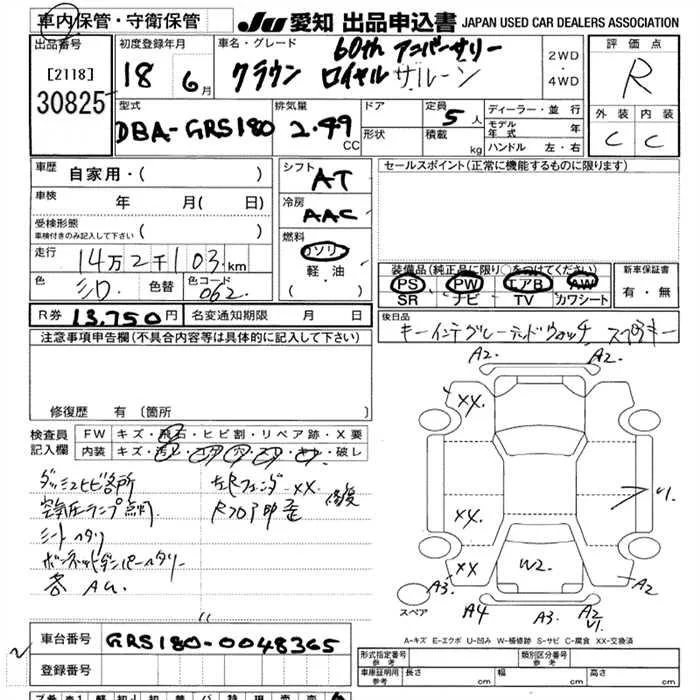 車内保管・守衛保管
JU 愛知 出品申込書 JAPAN USED CAR DEALERS ASSOCIATION
出品番号
[2118]
30825
初度登録年月
18 6月
車名・グレード
60th アニバーサリー
クラウン ロイヤルサルーン
2WD
・
4WD
評価点
R
外装 内装
C C
型式
DBA-GRS180
排気量
2.49
CC
ドア
形状
定員
5人
積載
kg
ディーラー・並行
モデル年式 年
ハンドル 左・右
車歴
自家用・( )
車検
年 月( 日)
受検形態
車検付きのみ記入して下さい
走行
14万2千103km
色
シロ
色替
色コード
062
シフト
AT
冷房
AAC
燃料
ガソリン
軽・油
( )
セールスポイント(正常に機能するものに限ります)
装備品(純正品に限り○をつけてください)
PS PW エアB AW
SR ナビ TV カワシート
新車保証書
有・無
R券 13,750円
名変通知期限 月 日
後日品
キーインテグレーテッドウォッチ スペアキー
注意事項申告欄(不具合内容等は具体的に記入して下さい)
修復歴 有 〔箇所
検査員
記入欄
FW キズ・飛石・ヒビ割・リペア跡・X要
内装 キズ・汚レ・コゲ・穴・スレ・キレ・破レ
ダッシュヒビ多所
空気圧ランプ点灯
シートヘタリ
ボンネットダンパーヘタリー
各 AU.
左Rフェンダー XX
Rフロア 中歪
修復
A2. A2.
XX.
XX.
XX
V1.
W2.
A3. A4 A3. A2 V1. A2
スペア
A-キズ E-エクボ U-凹み W-補修跡 S-サビ C-腐食 XX-交換済
車台番号 GRS180-0048365
登録番号
形式指定番号
参考
類別区分番号
参考
車庫証明用
参考
長さ cm 幅 cm 高さ cm